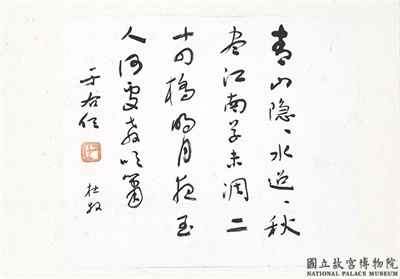 青山隐〻水迢〻秋
尽江南草未凋二
十四橋明月夜玉
人何處教吹簫
于右任
杜牧
國立故宮博物院
NATIONAL PALACE MUSEUM